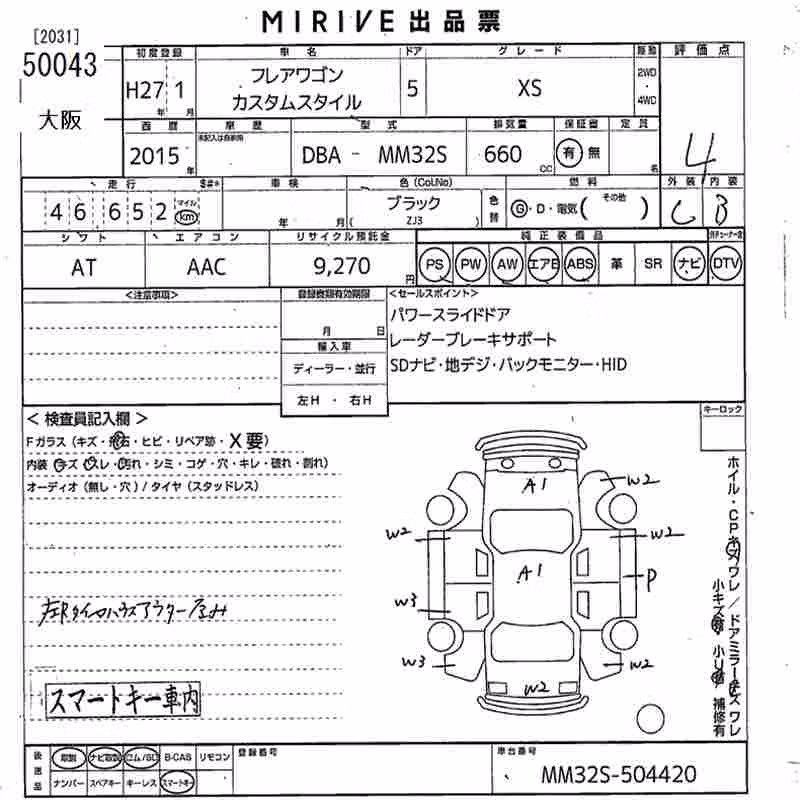 MIRIVE 出品票
[2031]
50043
大阪
初度登録 車名 ドア グレード 駆動 評価点
H27 1 年 月
フレアワゴン
カスタムスタイル
5
XS
2WD
・
4WD
西暦 車歴 型式 排気量 保証書 定員
未記入は自家用
2015 年
DBA - MM32S
660 CC
有 無
名
4
走行 車検 色(Col.No) 色替 燃料 外装 内装
46 652 マイル km
年 月
ブラック
( ZJ3 )
G・D・電気( その他 )
C B
シフト エアコン リサイクル預託金 純正装備品
AT AAC 9,270 円
PS PW AW エアB ABS 革 SR ナビ DTV
<注意事項>
登録書類有効期限
月 日
輸入車
ディーラー・並行
左H ・ 右H
<セールスポイント>
パワースライドドア
レーダーブレーキサポート
SDナビ・地デジ・バックモニター・HID
キーロック
<検査員記入欄>
Fガラス(キズ・飛石・ヒビ・リペア跡・X要)
内装(キズ・スレ・汚れ・シミ・コゲ・穴・キレ・破れ・割れ)
オーディオ(無し・穴)/タイヤ(スタッドレス)
スマートキー車内
A1
W2
W2
W2
A1
P
W3
W3
W2
W2
後送品
取説 ナビ取説 コム/SD B-CAS リモコン
ナンバー スペアキー キーレス スマートキー
登録番号
車台番号
MM32S-504420